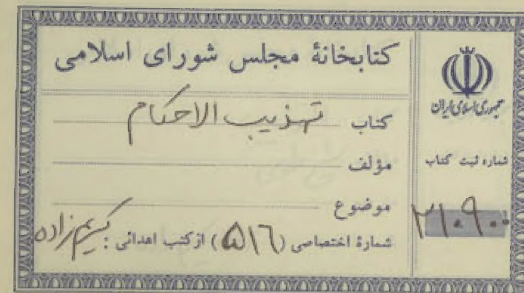 کتابخانهٔ مجلس شورای اسلامی
کتاب تهذیب الاحکام
مؤلف
موضوع
شمارهٔ اختصاصی (۵۱۶) از کتب اهدائی : کریم زاده
جمهوری اسلامی ایران
شماره ثبت کتاب
۳۱۰۹۰۰